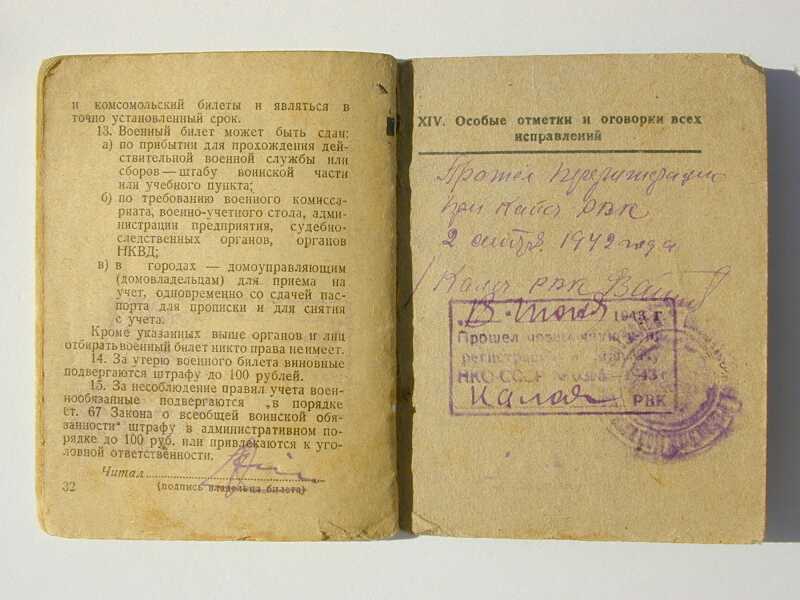 и комсомольский билеты и являться в
точно установленный срок.
13. Военный билет может быть сдан:
а) по прибытии для прохождения дей-
ствительной военной службы или
сборов — штабу воинской части
или учебного пункта;
б) по требованию военного комисса-
риата, военно-учетного стола, адми-
нистрации предприятия, судебно-
следственных органов, органов
НКВД;
в) в городах — домоуправляющим
(домовладельцам) для приема на
учет, одновременно со сдачей пас-
порта для прописки и для снятия
с учета.
Кроме указанных выше органов и лиц
отбирать военный билет никто права не имеет.
14. За утерю военного билета виновные
подвергаются штрафу до 100 рублей.
15. За несоблюдение правил учета воен-
нообязанные подвергаются „в порядке
ст. 67 Закона о всеобщей воинской обя-
занности" штрафу в административном по-
рядке до 100 руб. или привлекаются к уго-
ловной ответственности.
Читал
(подпись владельца билета)
32
XIV. Особые отметки и оговорки всех
исправлений
Прошел перерегистрацию
при РВК
2 1942 года
РВК
13 Июня 1943 г.
Прошел
НКО СССР 1943 г
РВК